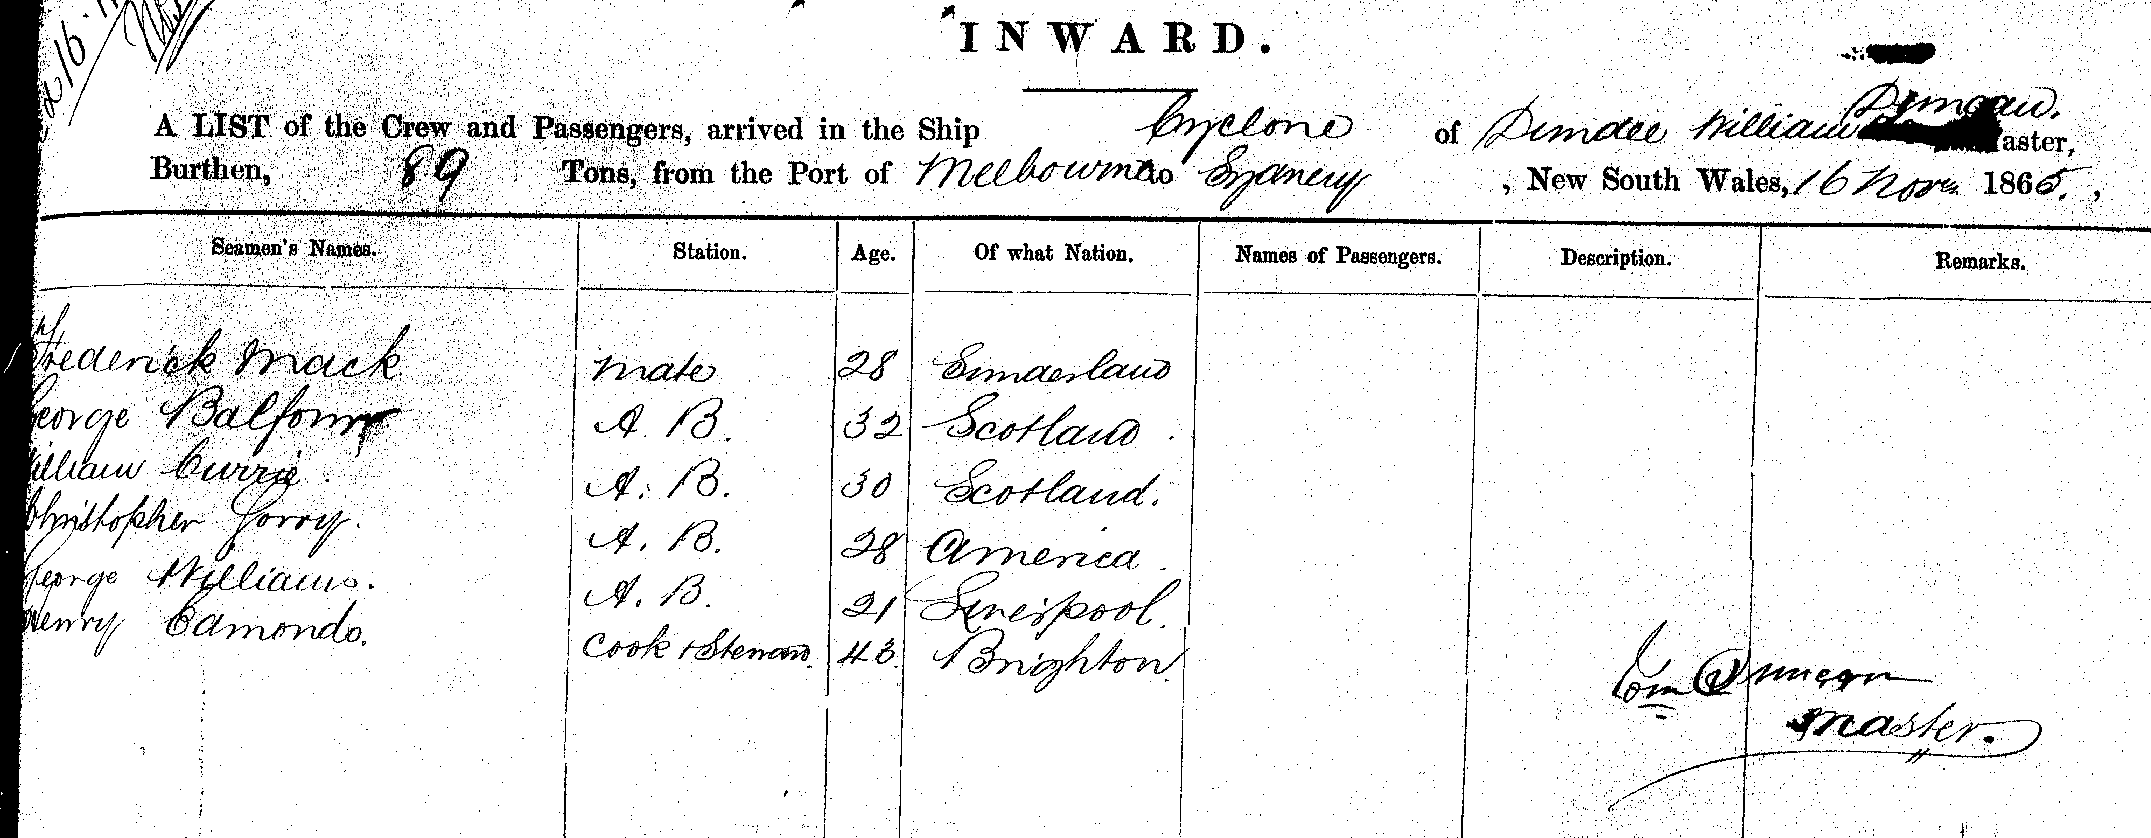 16
INWARD.
A LIST of the Crew and Passengers, arrived in the Ship Cyclone of Dundee William Duncan. Master,
Burthen, 89 Tons, from the Port of Melbourne to Sydney , New South Wales, 16 Novr. 1865. ,
Seamen's Names. Station. Age. Of what Nation. Names of Passengers. Description. Remarks.
Frederick Mack mate 28 Sunderland
George Balfour A. B. 32 Scotland.
William Currie. A. B. 30 Scotland.
Christopher Gorry. A. B. 28 America.
George Williams. A. B. 21 Liverpool.
Henry Edmonds. Cook + Steward. 43. Brighton.
Wm Duncan
Master.